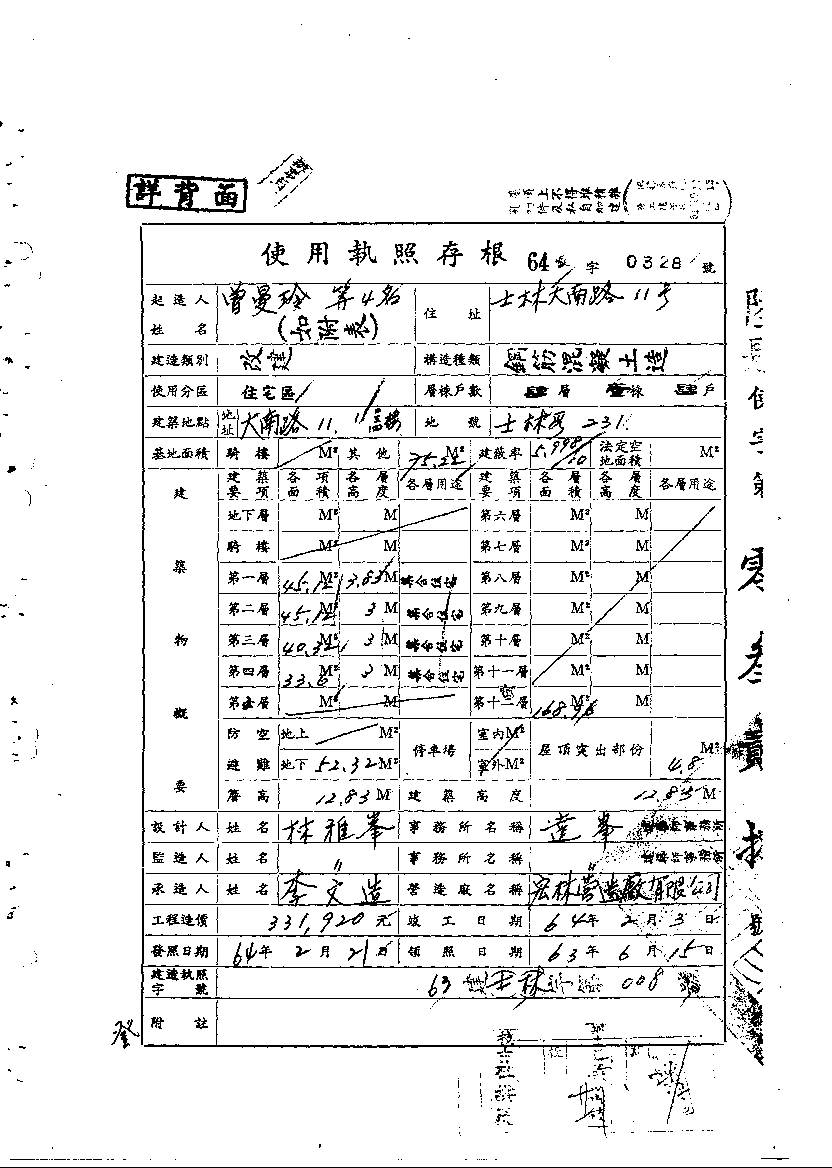 詳背面
使用執照存根 64 字 0328 號
起造人姓名 曾曼玲 等4名 (如附表) 住址 士林大南路11号
建造類別 改建 構造種類 鋼筋混凝土造
使用分區 住宅區 層棟戶數 層 棟 戶
建築地點 地址 大南路11. 地號 士林段 231
基地面積 騎樓 M² 其他 75.22 M² 建蔽率 5.998/10 法定空地面積 M²
建築要項 各項面積 各層高度 各層用途 建築要項 各層面積 各層高度 各層用途
建築物概要
地下層 M² M 第六層 M² M
騎樓 M² M 第七層 M² M
第一層 45.12 M² 3.83 M 集合住宅 第八層 M² M
第二層 45.12 M² 3 M 集合住宅 第九層 M² M
第三層 40.32 M² 3 M 集合住宅 第十層 M² M
第四層 33.6 M² 3 M 集合住宅 第十一層 M² M
第五層 M² M 第十二層 168.96 M² M
防空避難 地上 M² 停車場 室內 M² 屋頂突出部份 4.8 M²
地下 52.32 M² 室外 M²
簷高 12.83 M 建築高度 12.83 M
設計人 姓名 林雅峯 事務所名稱 達峯
監造人 姓名 〃 事務所名稱 〃
承造人 姓名 李文造 營造廠名稱 宏林營造廠有限公司
工程造價 331,920 元 竣工日期 64年 2月 3日
發照日期 64年 2月 21日 領照日期 63年 6月 15日
建造執照字號 63 士林 008
附註